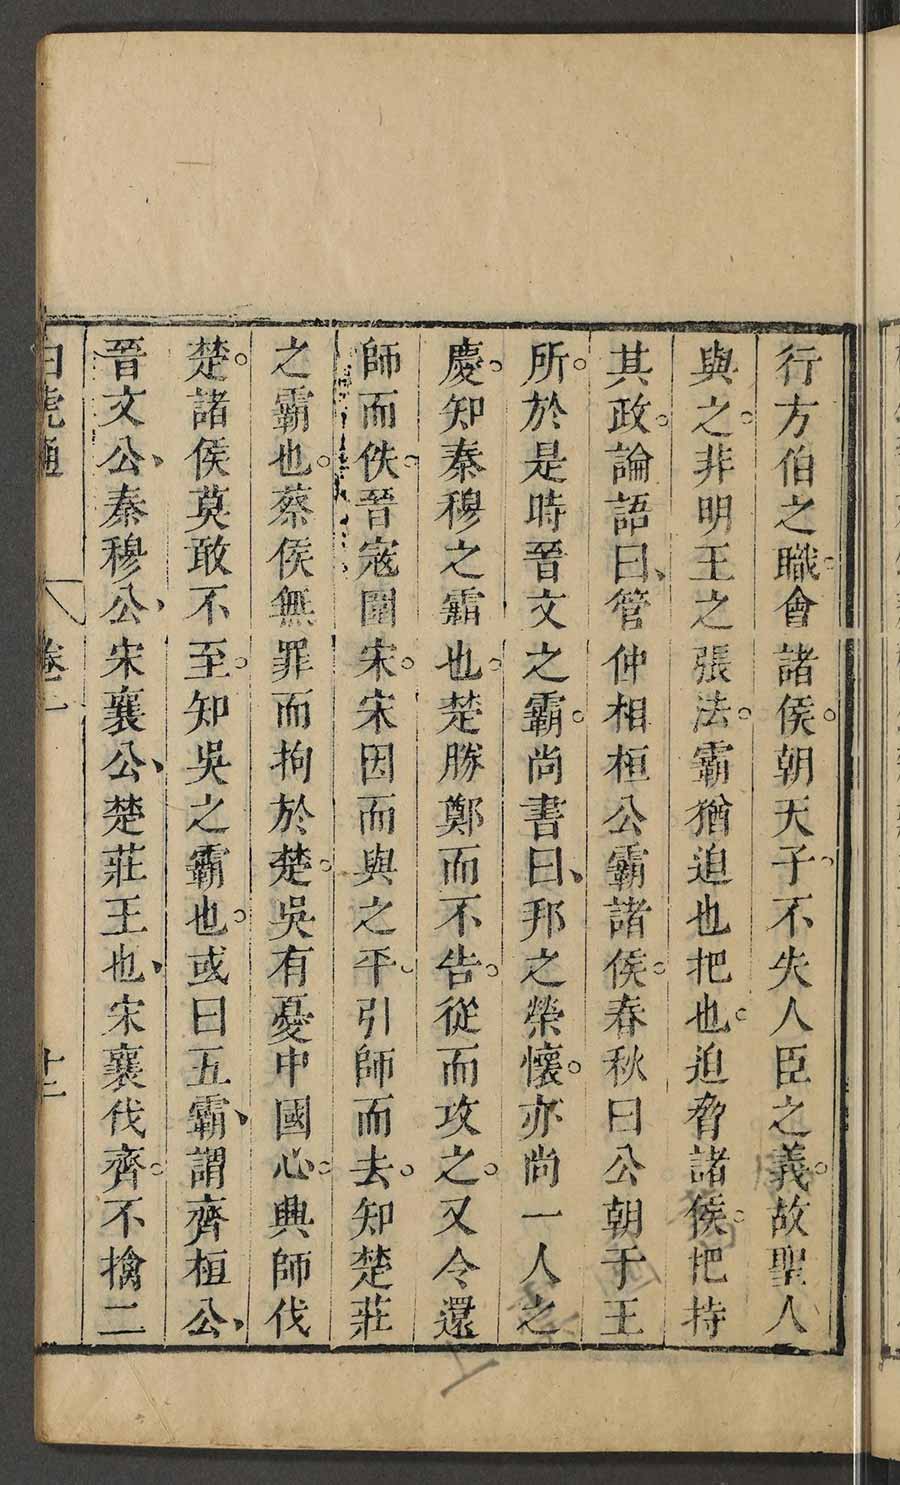 行方伯之職。會諸侯。朝天子。不失人臣之義。故聖人
與之。非明王之張法。霸猶迫也把也。迫脅諸侯。把持
其政。論語曰、管仲相桓公霸諸侯。春秋曰公朝于王
所。於是時晉文之霸。尚書曰、邦之榮懷。亦尚一人之
慶。知秦穆之霸也。楚勝鄭而不告。從而攻之。又令還
師而佚。晉寇圍宋。宋因而與之平。引師而去。知楚莊
之霸也。蔡侯無罪而拘於楚。吳有憂中國心。興師伐
楚。諸侯莫敢不至。知吳之霸也。或曰五霸、謂齊桓公、
晉文公、秦穆公、宋襄公、楚莊王也、宋襄伐齊。不擒二
白虎通 卷一 十二